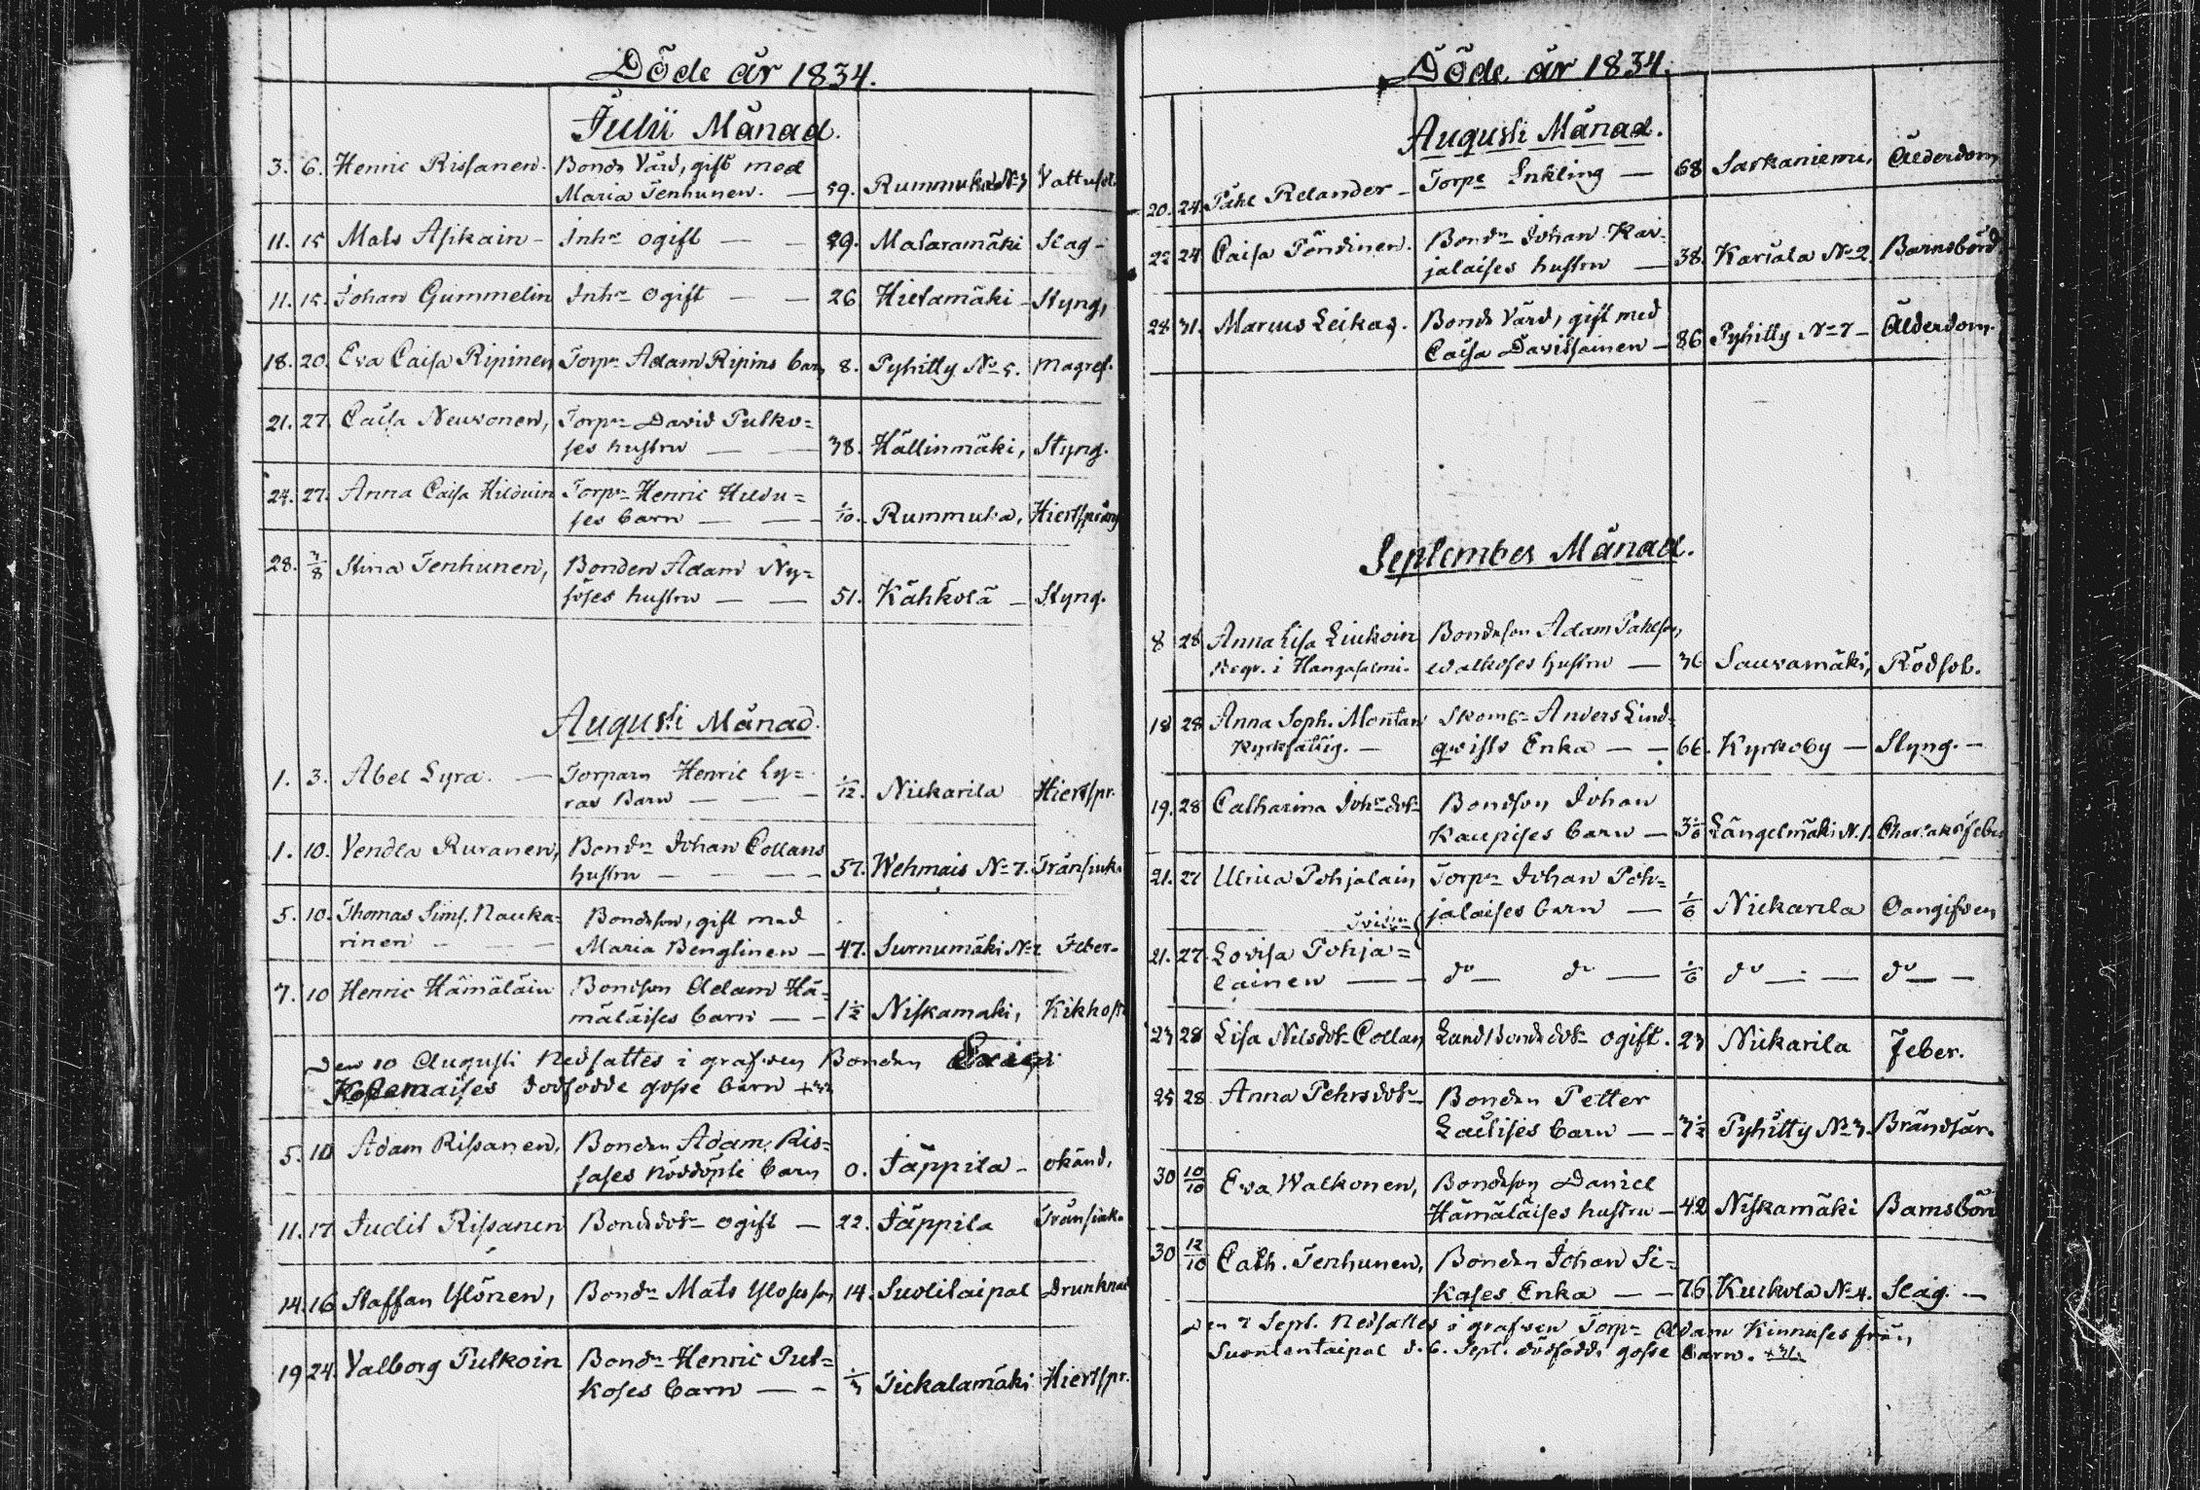 Döde år 1834.
Julii Månad.
3. 6. Henric Rissanen. Bonde Värd, gift med
Maria Tenhunen. — 59. Rummuka No 3 Vattusot
11. 15 Mats Asikain - Inhs ogift — — 29. Mataramäki Slag -
11. 15. Johan Gummelin Inhs ogift — — 26 Hietamäki - Styng,
18. 20. Eva Caisa Ripinen Torpn Adam Ripins barn 8. Pyhitty No 5. Magref.
21. 27. Caisa Neuvonen, Torpn David Pulko=
ses hustru — — 38. Hällinmäki, Styng.
24. 27. Anna Caisa Hilduin Torpn Henric Hildu=
ses barn — — 1/10. Rummuka, Hiertsprång
28. 3/8 Stina Tenhunen, Bonden Adam Ny=
söses hustru — — 51. Kähkölä — Styng.
Augusti Månad.
1. 3. Abel Lyra. — Torparn Henric Ly=
ras Barn — — - 1/12. Niekarila Hiertspr.
1. 10. Vendla Ruranen, Bondn Johan Collans
hustru — — — 57. Wehmais No 7. Trånsiuk.
5. 10. Thomas Sims. Nauka=
rinen — — Bondeson, gift med
Maria Benglinen — 47. Surnumäki No 2 Feber.
7. 10 Henric Hämäläin Bondson Adam Hä=
mäläises barn — - 1 1/2 Niskamäki, Kikhosta
Den 10 Augusti nedsattes i grafven Bonden
dödfödde gosse barn
5. 10 Adam Rissanen, Bonden Adam Ris=
sases nöddöpte barn 0. Jäppilä - okänd.
11. 17. Judit Rissanen Bondedotr ogift — 22. Jäppilä Trånsiuk.
14. 16 Staffan Ylönen, Bondn Mats Ylöses son 14. Suolitaipal Drunknad
19 24. Valborg Pulkoin Bondn Henric Pul=
koses barn — - 1/3 Tickalamäki Hiertspr.
Döde år 1834.
Augusti Månad.
20. 24. Påhl Relander - Torpe Inkling — 68 Sarkaniemi, Ålderdom
22 24 Caisa Pöndinen. Bondn Johan Kar=
jalaises hustru — 38. Kariala No 2. Barnsbörd
28 31. Marcus Leikas. Bonde Värd, gift med
Caisa Davitsainen — 86 Pyhitty No 7 — Ålderdom.
September Månad.
8 28 Anna Lisa Liukoin Bondeson Adam Påhlson
Begr. i Hangasalmi. Walkoses hustru — 36 Sauvamäki, Rödsot.
18 28 Anna Soph. Montan Skomr Anders Lind=
Kyrkfattig. — qwists Enka — — 66. Kyrkoby — Styng. -
19. 28 Catharina Johsdotr Bondson Johan
Kaupises barn — 3 1/6 Längelmäki N. 1. Charlaksfeber
21. 27 Ulrica Pohjalain Torpn Johan Poh=
jalaises barn — 1/6 Niekarila Oangifven
21. 27. Lovisa Pohja=
lainen — — do — do — 1/6 do — — do —
23 28 Lisa Nilsdotr Collan Landbondedotr ogift. 23 Niekarila Feber.
25 28 Anna Pehrsdotr Bonden Petter
Laitises barn — - 3 1/2 Pyhitty No 3. Brändsår.
30 10/10 Eva Walkonen, Bondeson Daniel
Hämäläises hustru — 42 Niskamäki Barnsbörd
30 12/10 Cath. Tenhunen, Bonden Johan Si=
kases Enka — - 76. Kuikola No 4. Slag. —
Den 7 Sept. nedsattes i grafven Torpn Adam Kinnuses från
Suontentaipal d. 6. Sept. dödfödde gosse barn.